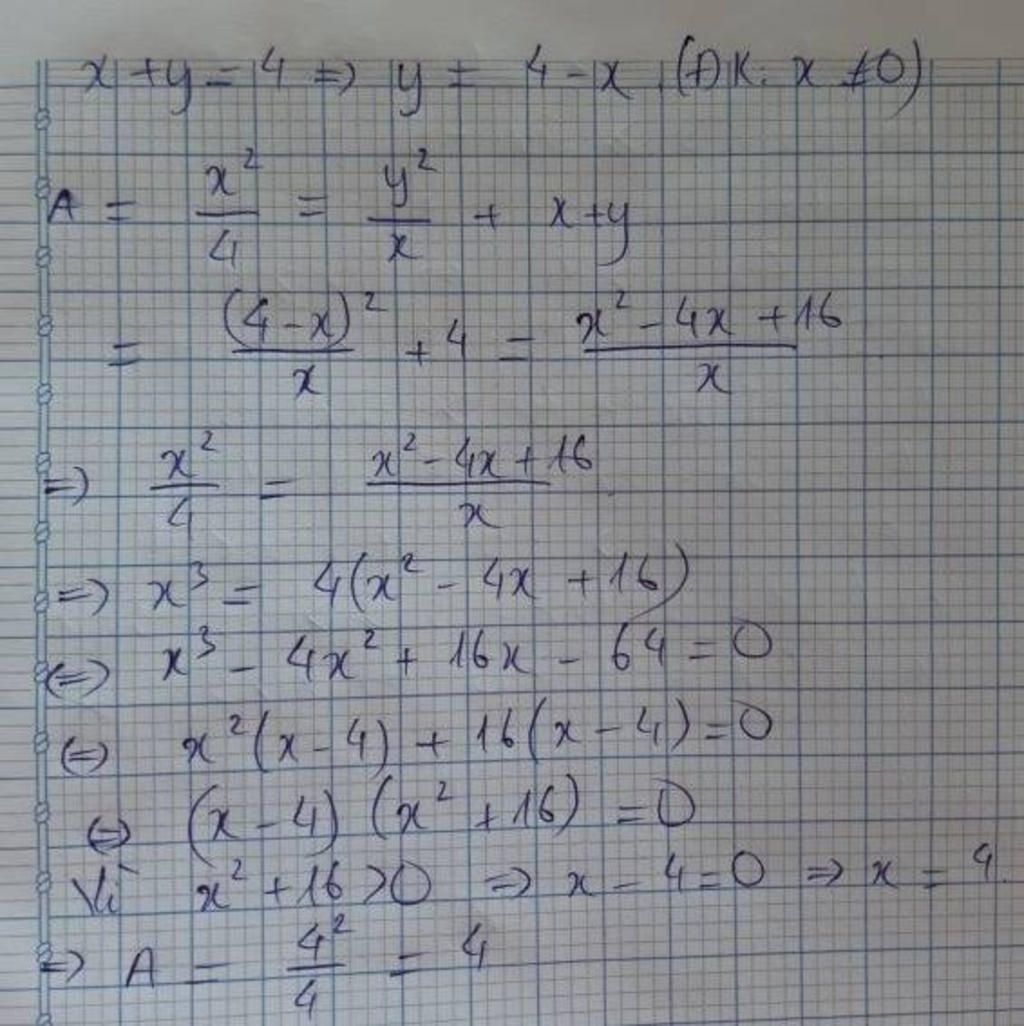 x + y = 4 => y = 4 - x. (ĐK: x ≠ 0)
A = x²/4 = y²/x + x + y
= (4 - x)²/x + 4 = (x² - 4x + 16)/x
=> x²/4 = (x² - 4x + 16)/x
=> x³ = 4(x² - 4x + 16)
(=) x³ - 4x² + 16x - 64 = 0
(=) x²(x - 4) + 16(x - 4) = 0
(=) (x - 4) (x² + 16) = 0
Vì x² + 16 > 0 => x - 4 = 0 => x = 4.
=> A = 4²/4 = 4